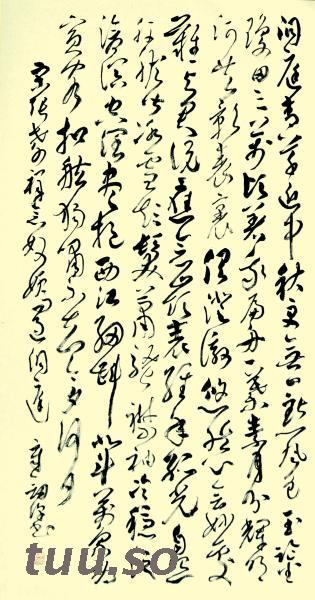 洞庭青草近中秋更無一點風色玉鑑
瓊田三萬頃著我扁舟一葉素月分輝明
河共影表裏俱澄澈悠然心會妙處
難與君說應念嶺表經年孤光自照
肝膽皆冰雪短鬢蕭騷襟袖冷穩泛
滄溟空闊盡挹西江細斟北斗萬象為
賓客扣舷獨嘯不知今夕何夕
宋張孝祥念奴嬌過洞庭 書
tuu.so
tuu.so